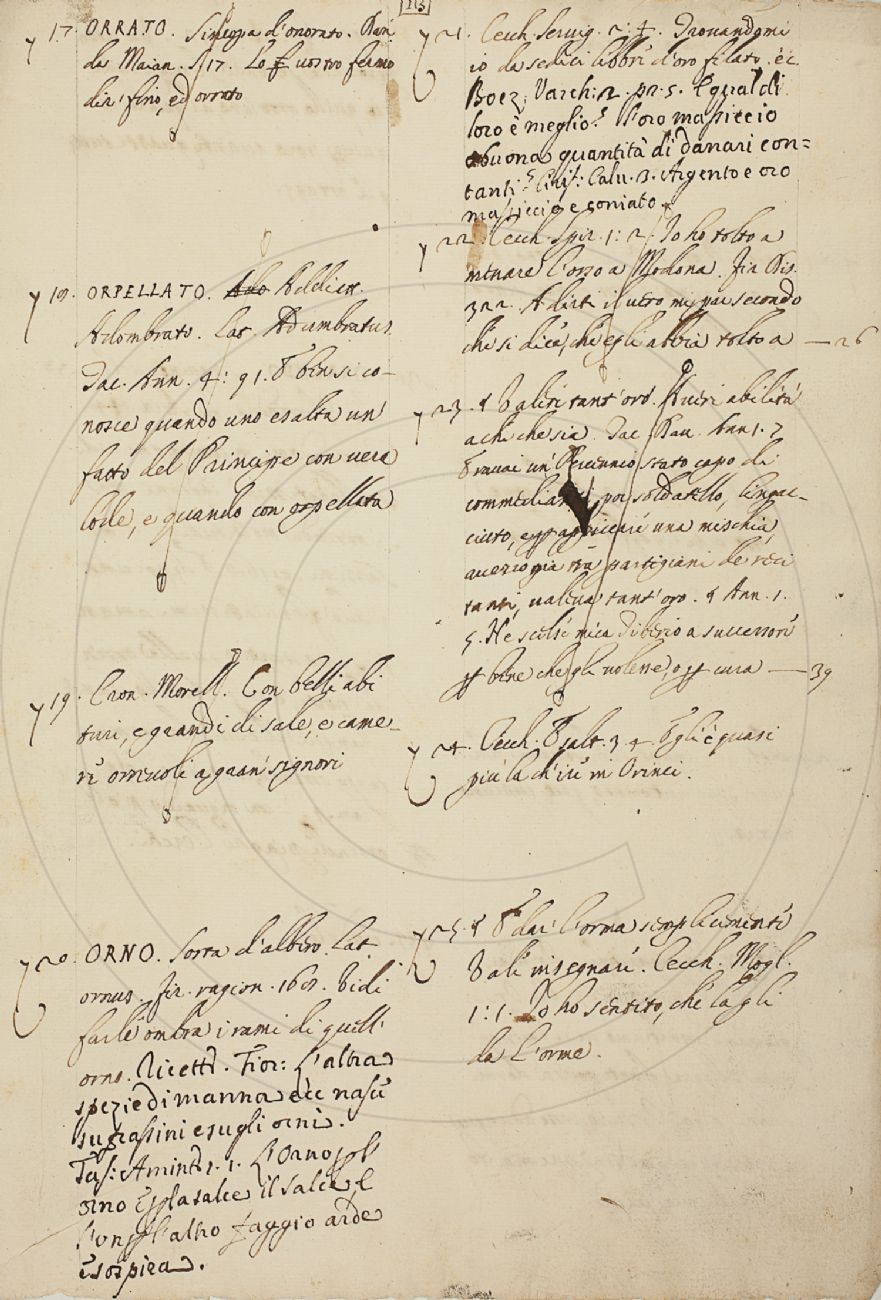 213
17. ORRATO. Sincopa d'onorato. Dan.
da Maian. 17. Lo vostro fermo
dir' fino, ed orrato
19. ORPELLATO. Ado Addiett.
Adombrato. Lat. Adumbratus
Tac. Ann. 4: 91. E ben si co-
nosce quando uno esalta un'
fatto del Principe con vera
lode, e quando con orpellata
19. Cron. Morell. Con belli abi
turi, e grandi di sale, e came-
re orrevoli a gran' signori
20. ORNO. Sorta d'albero. Lat.
ornus. Fir. ragion. 160. Vidi
farle ombra i rami di quell'
orno. Ricett. Fior: L'altra
spezie di manna ecc nasce
su frassini e sugli orni.
Tass: Amint. 1. 1. L'Orno pell'
orno E pella salce il Salce, e
l'un pell'altro faggio arde
E sospira.
21. Cecch. Servig. 2: 4. Trovandomi
io da sedici libbre d'oro filato. ecc
Boez: Varch: 2. pr. 5. E qual di
loro è meglio? l'oro massiccio
o buona quantità di danari con=
tanti? Crist: Calv. 3. Argento e oro
massiccio e coniato.
22. Cecch. Spir. 1: 2. Io ho tolto a
menare l'orso a Modona. Fir. Dis.
che si dice, che egli abbia tolto a — 26
23. Valere tant' oro. Avere abilità
a chi che sia. Tac. Dav. Ann 1. 7
Eravi un' Percennio stato capo di
commedianti, poi soldatello, linguac-
ciuto, e per appiccare una mischia,
avvezzo già tra partigiani de reci
tanti, valeva tant'oro. Ann. 1.
5. Ne scelse mica Tiberio a successore
per bene che gli volesse, o per cura — 39
24. Cecch. Esalt. 3 4. Egli è quasi
più la ch' in Orinci.
25. E dar l'orma semplicemente
Vale insegnare. Cecch. Mogl.
1: 1. Io ho sentito, che la gli
da l'orme.